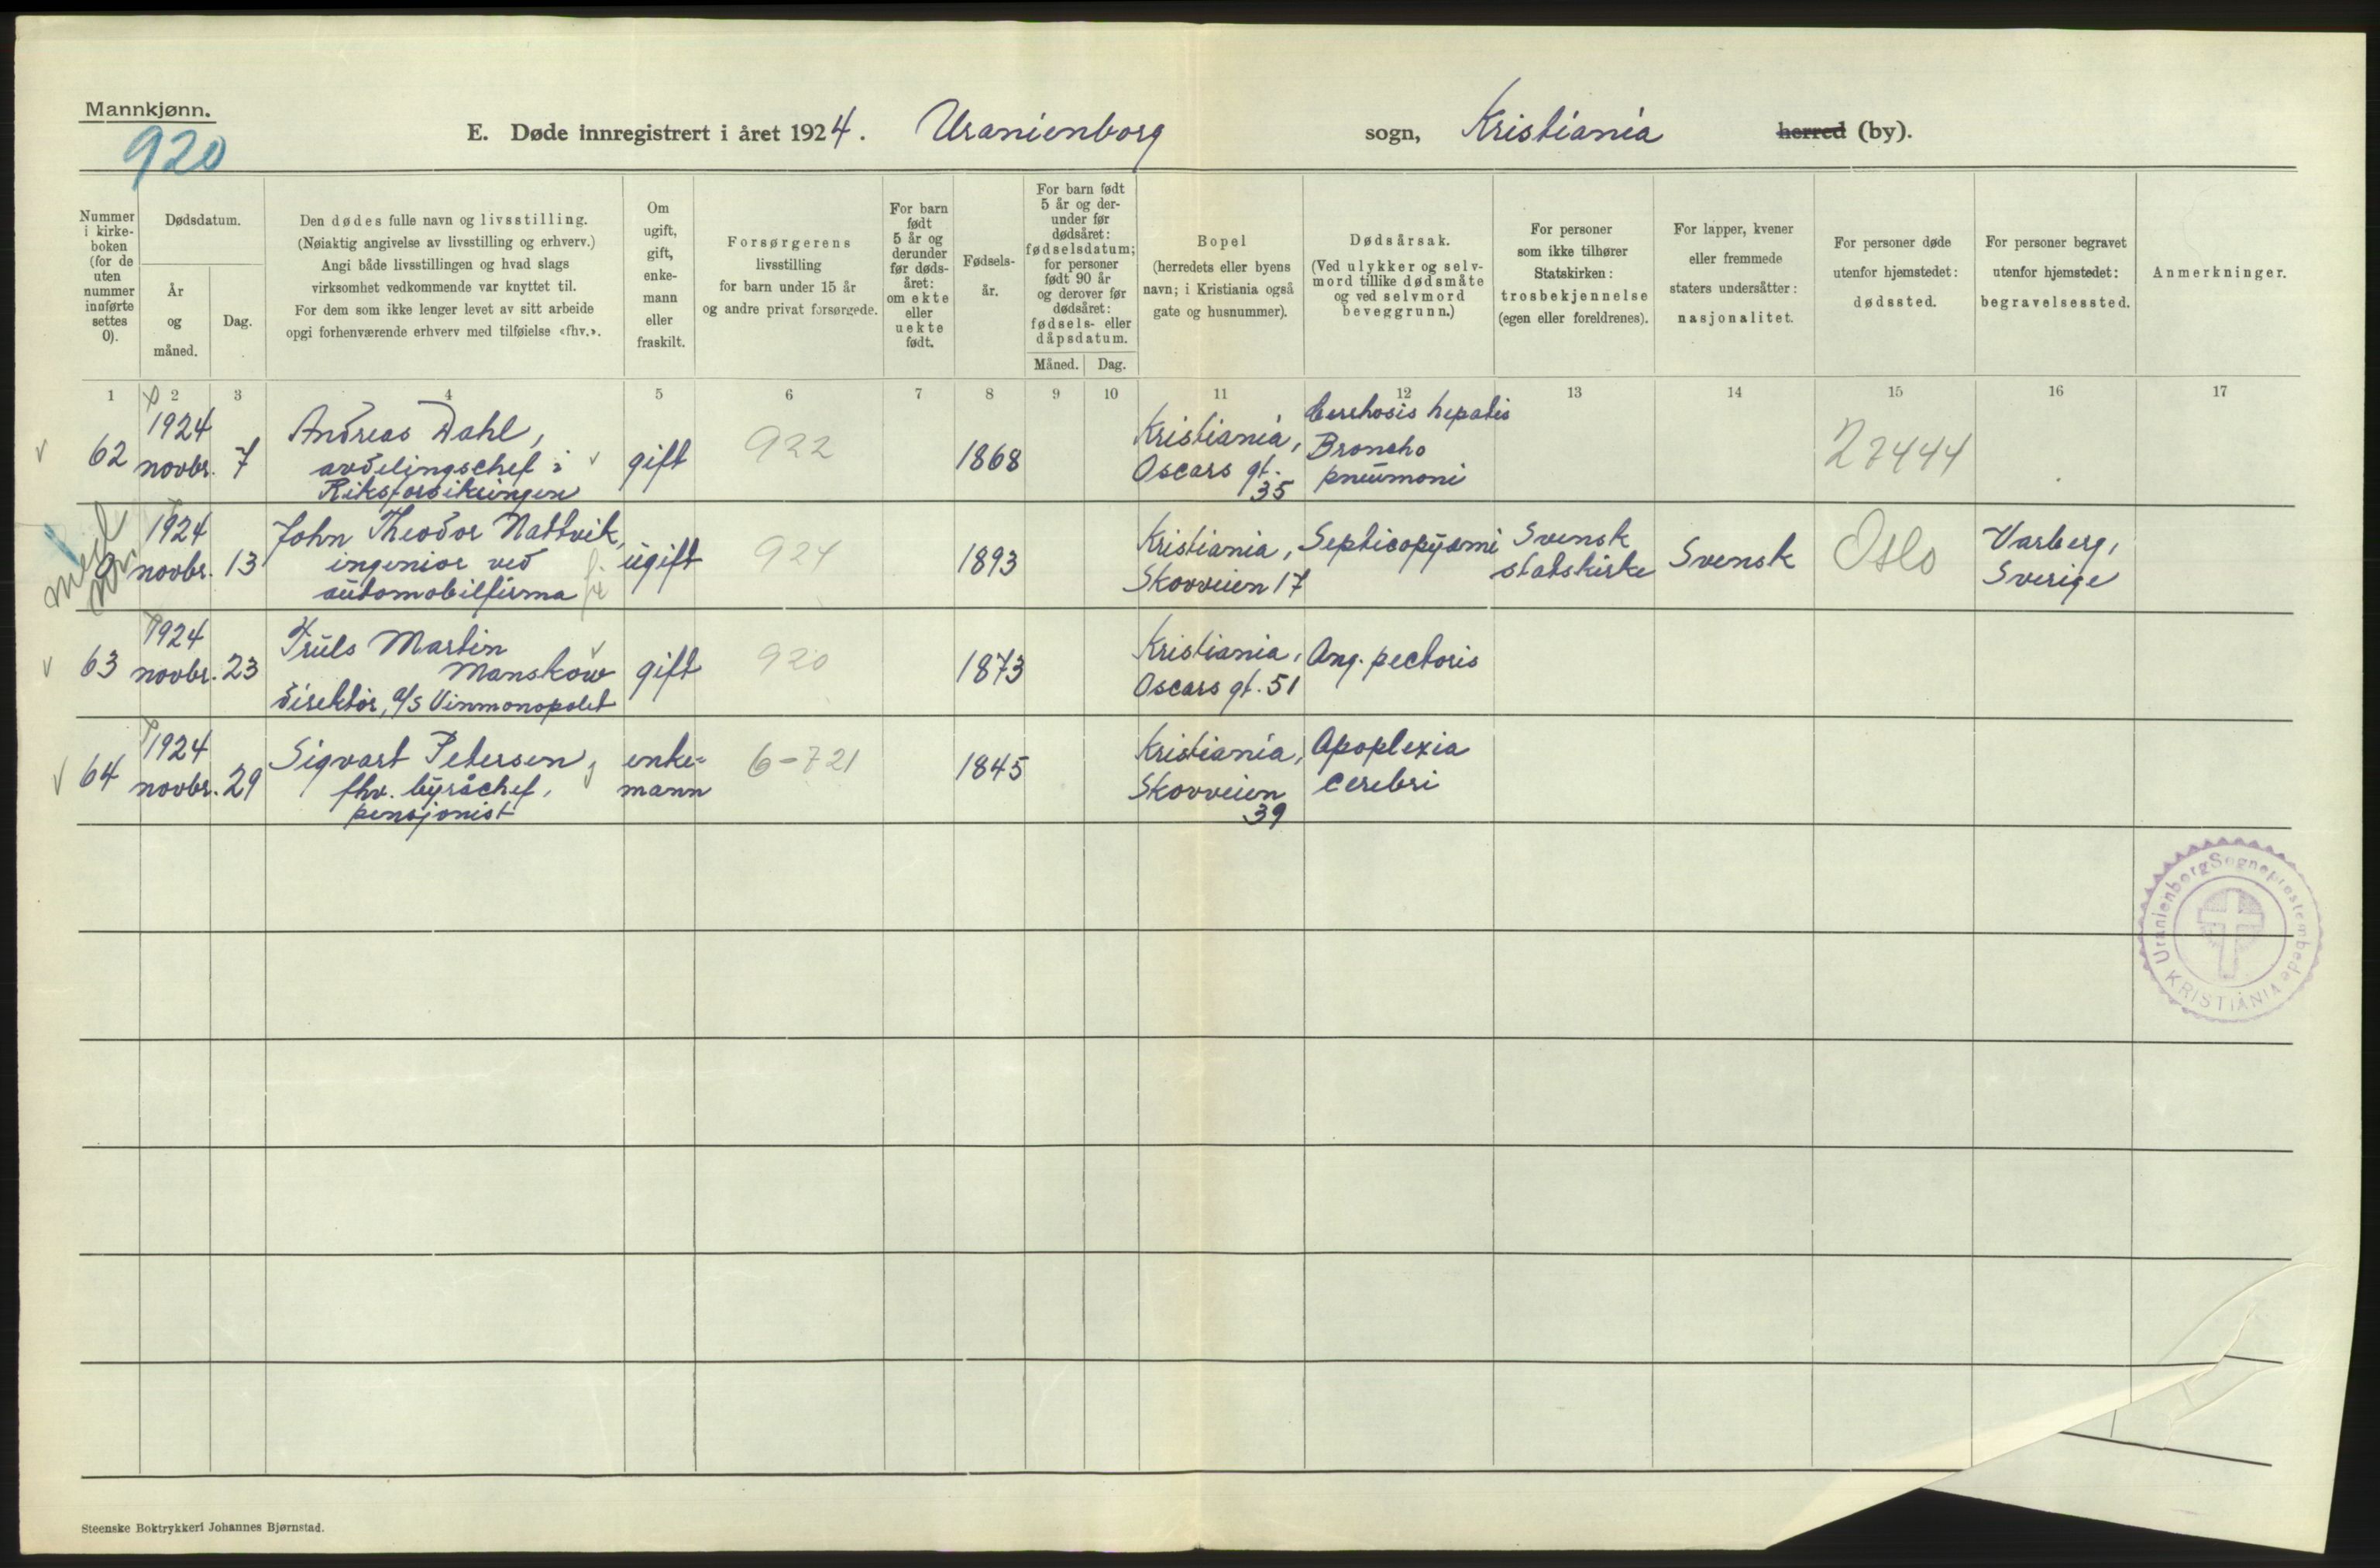 Mannkjønn.
920
E. Døde innregistrert i året 1924. Uranienborg sogn, Kristiania herred (by).
Nummer i kirke-boken (for de uten nummer innførte settes 0).
Dødsdatum.
År og måned.
Dag.
Den dødes fulle navn og livsstilling.
(Nøiaktig angivelse av livsstilling og erhverv.)
Angi både livsstillingen og hvad slags
virksomhet vedkommende var knyttet til.
For dem som ikke lenger levet av sitt arbeide
opgi forhenværende erhverv med tilføielse «fhv.».
Om ugift, gift, enke-mann eller fraskilt.
Forsørgerens
livsstilling
for barn under 15 år
og andre privat forsørgede.
For barn født 5 år og derunder før døds-året: om ekte eller uekte født.
Fødsels-år.
For barn født 5 år og der-under før dødsåret: fødselsdatum; for personer født 90 år og derover før dødsåret: fødsels- eller dåpsdatum.
Måned. Dag.
Bopel
(herredets eller byens
navn; i Kristiania også
gate og husnummer).
Dødsårsak.
(Ved ulykker og selv-
mord tillike dødsmåte
og ved selvmord
beveggrunn.)
For personer
som ikke tilhører
Statskirken:
trosbekjennelse
(egen eller foreldrenes).
For lapper, kvener
eller fremmede
staters undersåtter:
nasjonalitet.
For personer døde
utenfor hjemstedet:
dødssted.
For personer begravet
utenfor hjemstedet:
begravelsessted.
Anmerkninger.
1 2 3 4 5 6 7 8 9 10 11 12 13 14 15 16 17
62 1924 novbr. 7
Andreas Dahl,
avdelingschef i
Riksforsikringen
gift 922 1868
Kristiania,
Oscars gt.
35
Cirrhosis hepatis
Broncho
pneumoni
27444
0 1924 novbr. 13
John Theodor Nattvik,
ingeniør ved
automobilfirma
ugift 924 1893
Kristiania,
Skovveien 17
Septicopyæmi
Svensk
statskirke
Svensk
Oslo
Varberg,
Sverige
63 1924 novbr. 23
Truls Martin
Manskow
direktør, A/S Vinmonopolet
gift 920 1873
Kristiania,
Oscars gt. 51
Ang. pectoris
64 1924 novbr. 29
Sigvart Petersen,
fhv. byråchef,
pensjonist
enke-
mann
6-721 1845
Kristiania,
Skovveien
39
Apoplexia
cerebri
Uranienborg Sogneprestembede
KRISTIANIA
Steenske Boktrykkeri Johannes Bjørnstad.